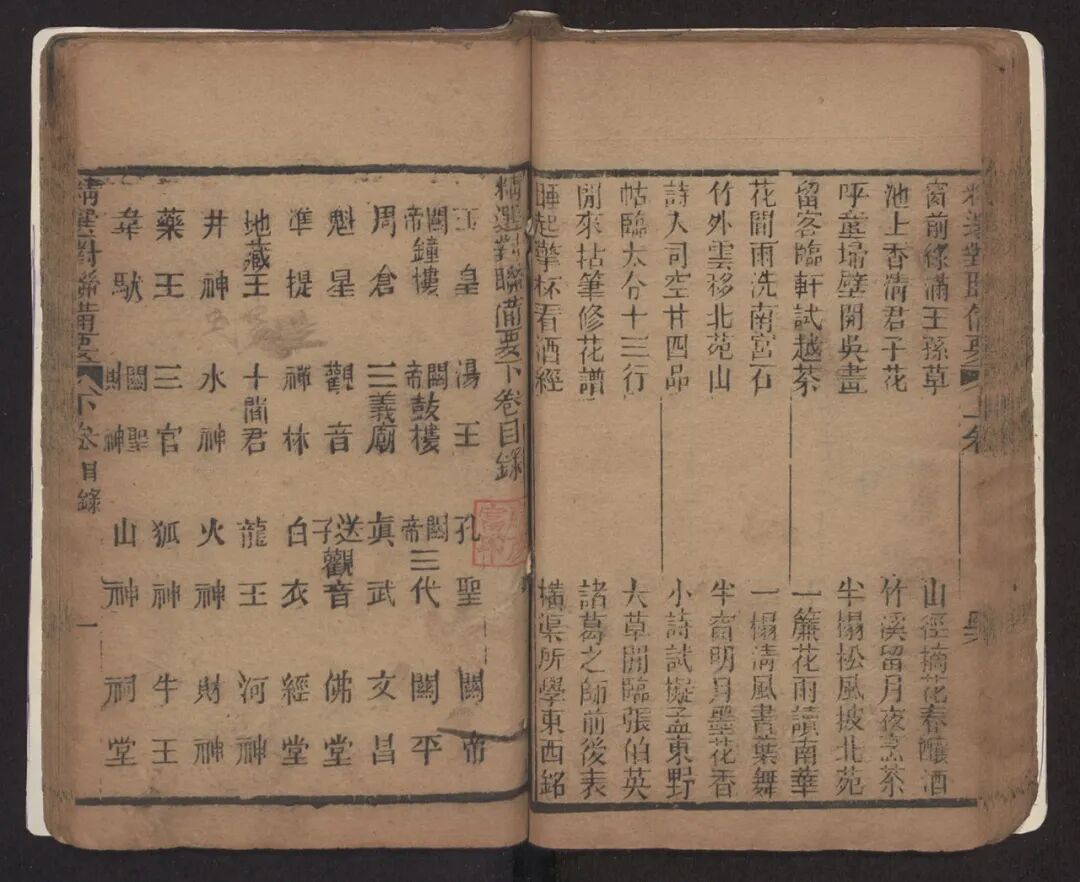 精選對聯備要 上卷
窗前綠滿王孫草 山徑橋花春釀酒
池上香清君子花 竹溪留月夜烹茶
呼童埽壁開吳畫 半榻松風披北苑
留客臨軒試越茶 一簾花雨讀南華
花間雨洗南宮石 一榻清風書葉舞
竹外雲移北苑山 半窗明月墨花香
詩人司空廿四品 小詩試擬孟東野
帖臨太令十三行 大草閒臨張伯英
閒來拈筆修花譜 諸葛之師前後表
睡起擎杯看酒經 橫渠所學東西銘
精選對聯備要下卷目錄
玉皇 湯王 孔聖 關帝
關帝鐘樓 關帝鼓樓 關帝三代 關平
周倉 三義廟 真武 文昌
魁星 觀音 送子觀音 佛堂
準提 禪林 白衣 經堂
地藏王 十閻君 龍王 河神
井神 水神 火神 財神
藥王 三官 狐神 牛王
韋馱 關聖財神 山神 祠堂
精選對聯備要 下卷目錄 一